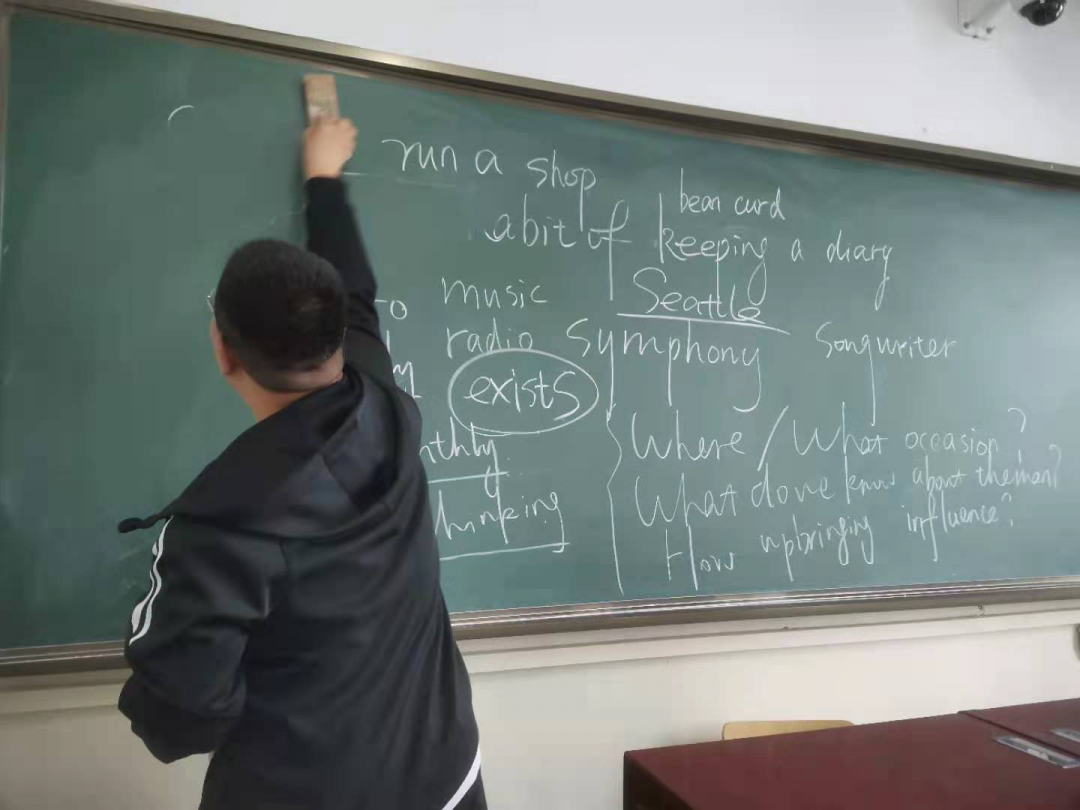 run a shop
bean curd
a bit of keeping a diary
to music Seattle
radio symphony songwriter
exists
Where / What occasion?
thinking What do we know about the man?
How upbringing influence?